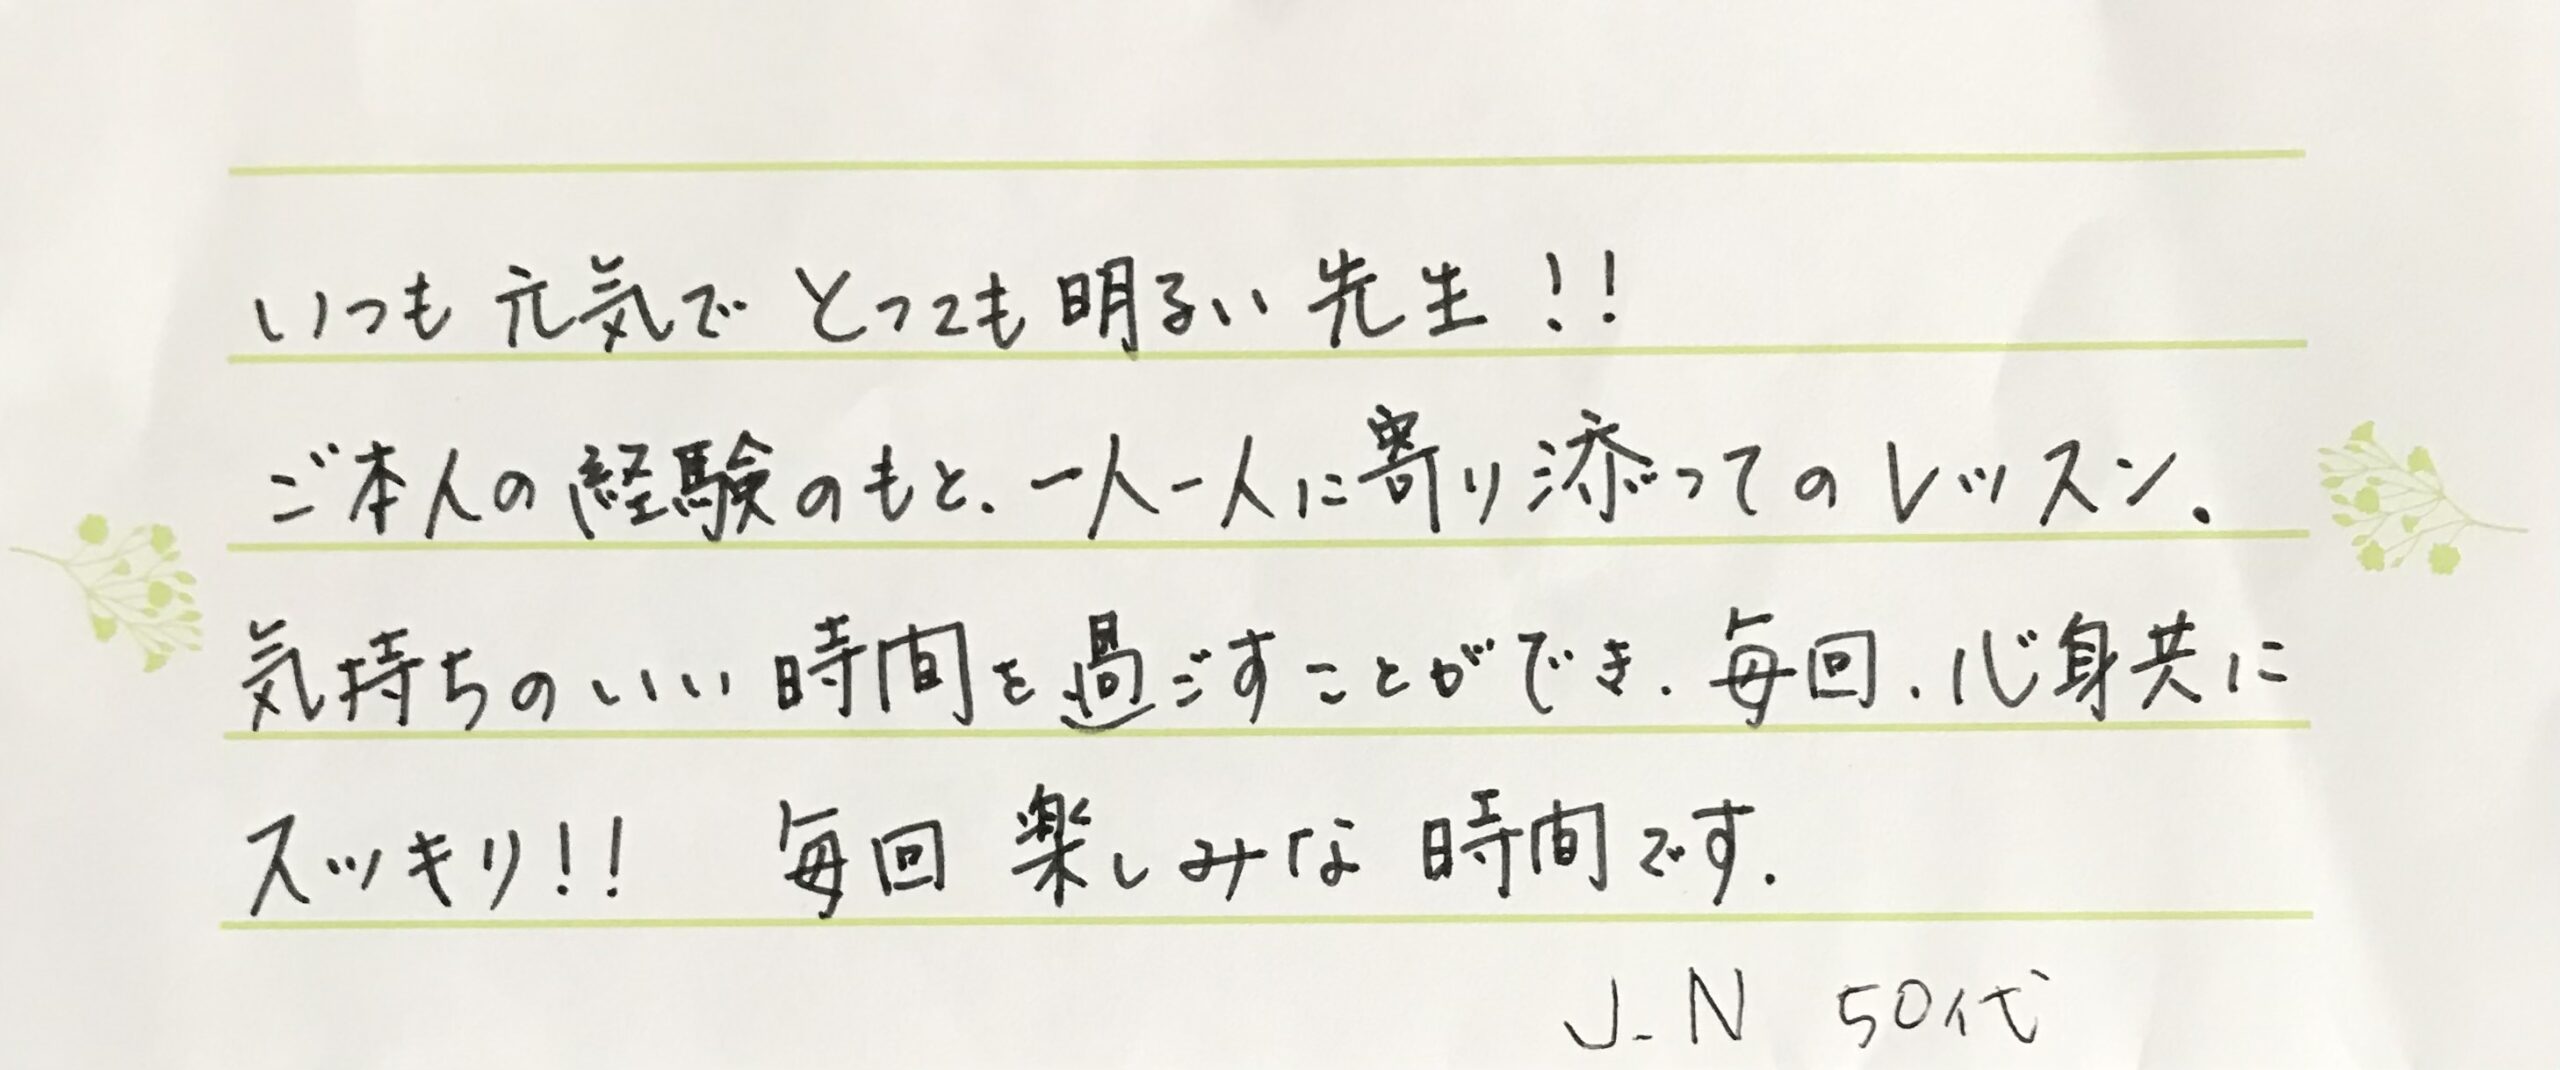 いつも 元気で とっても 明るい 先生!!
ご本人の経験のもと、一人一人に寄り添ってのレッスン。
気持ちのいい時間を過ごすことができ、毎回、心身共に
スッキリ!! 毎回 楽しみな 時間です。
J.N 50代